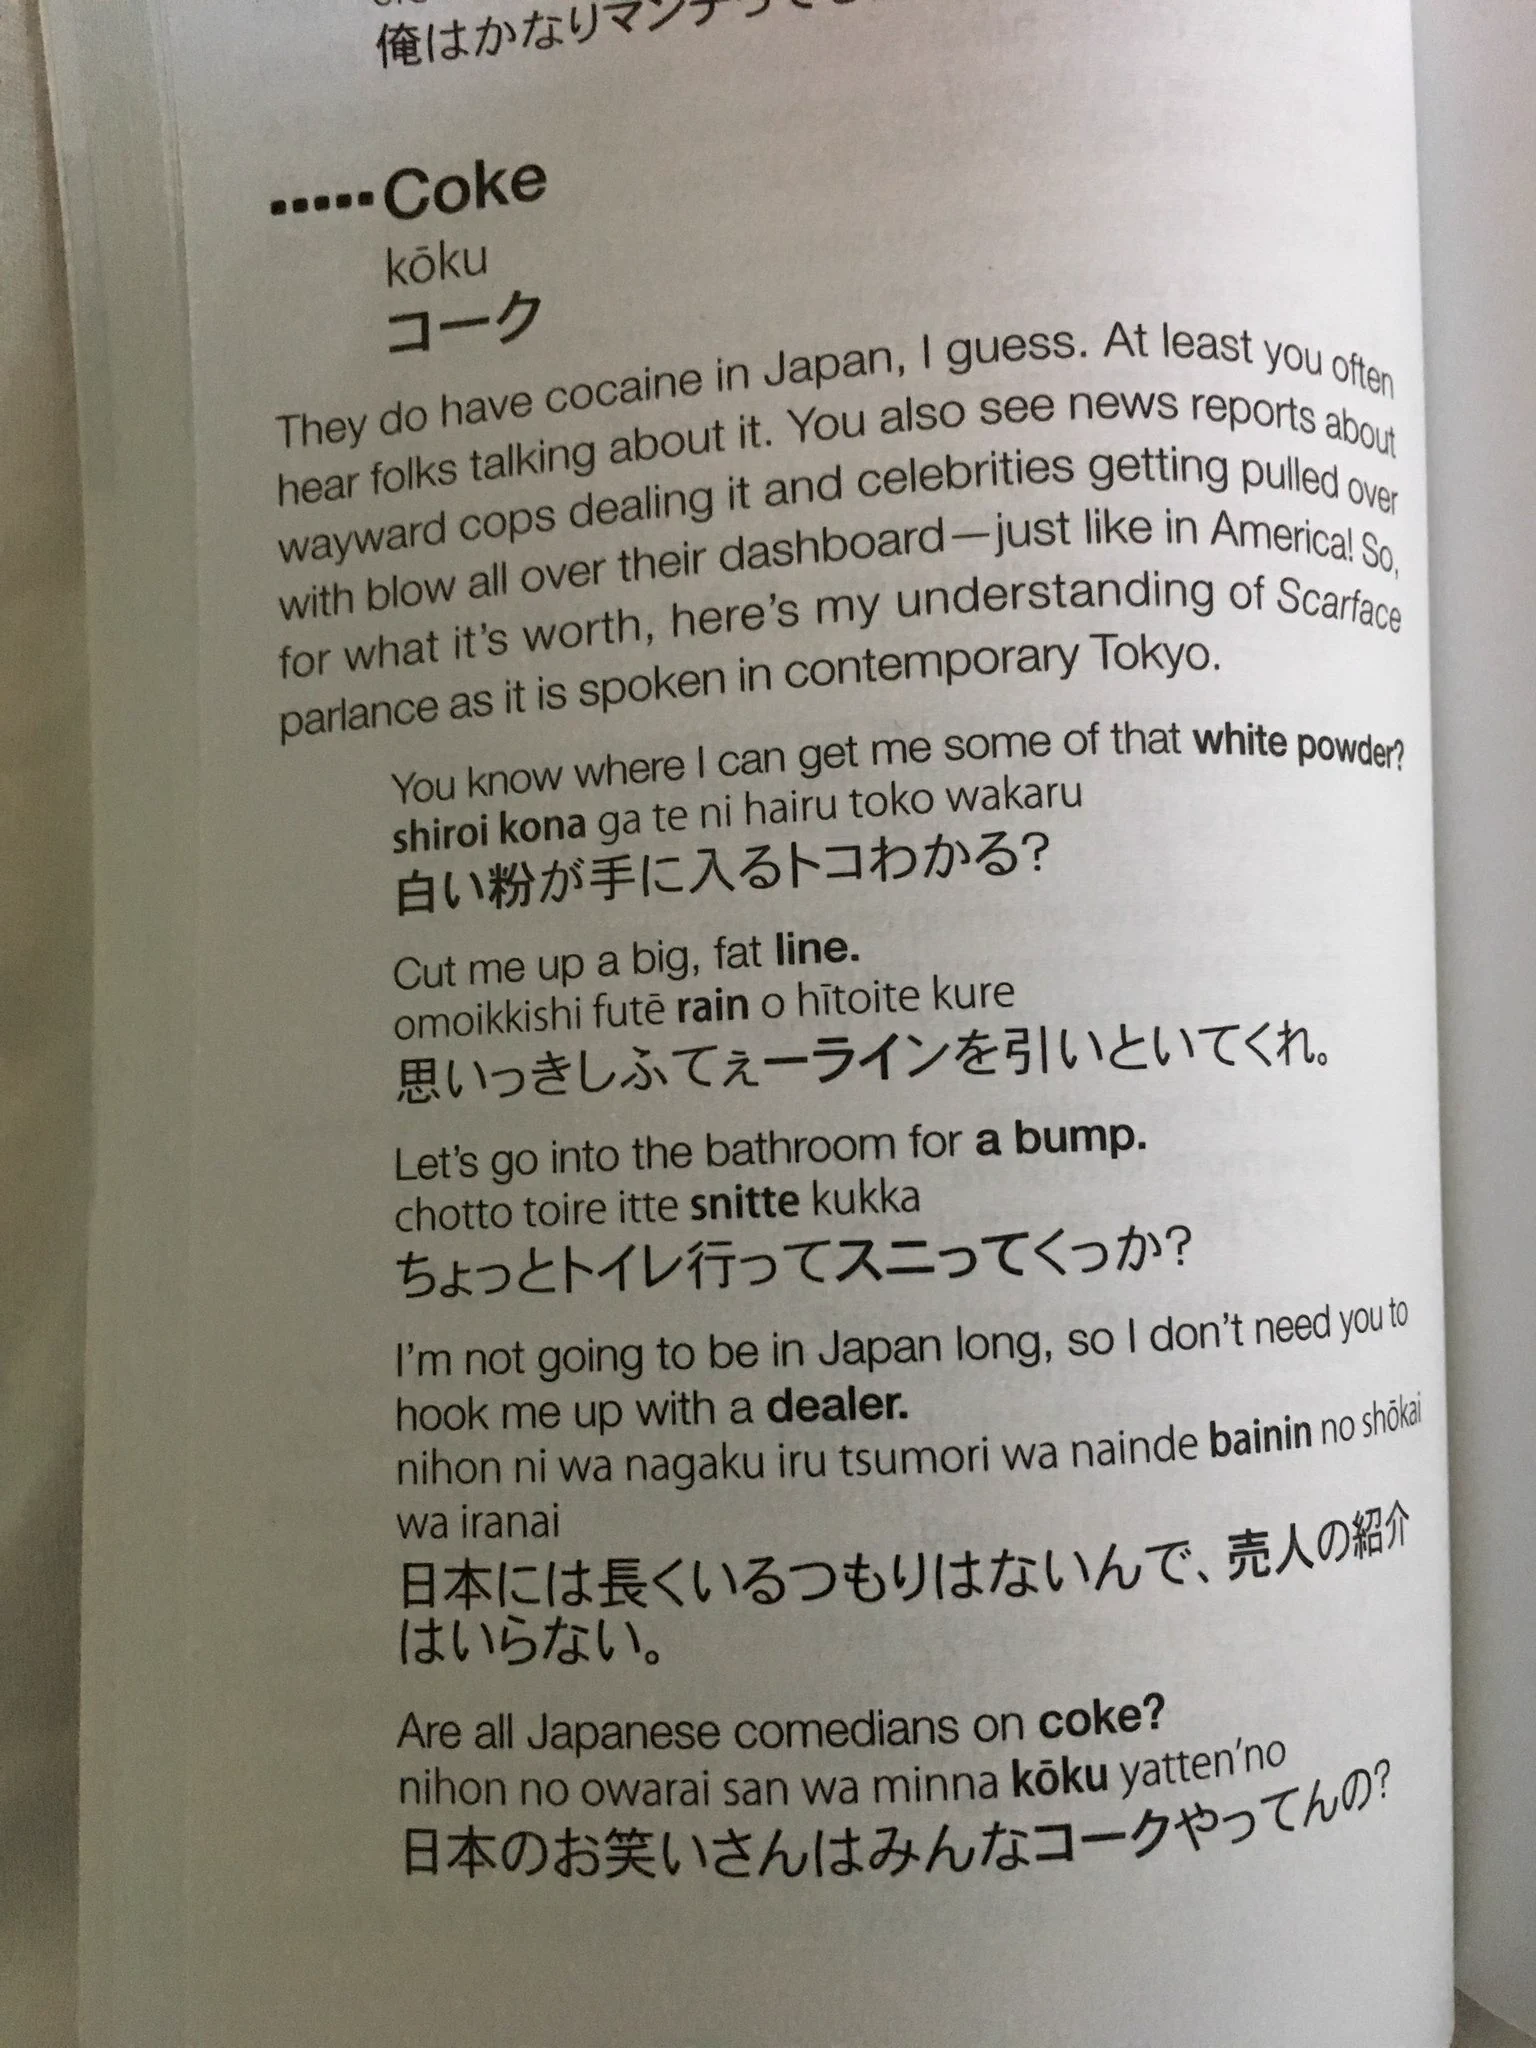 俺はかなりマンチ
Coke
kōku
コーク
They do have cocaine in Japan, I guess. At least you often
hear folks talking about it. You also see news reports about
wayward cops dealing it and celebrities getting pulled over
with blow all over their dashboard—just like in America! So,
for what it's worth, here's my understanding of Scarface
parlance as it is spoken in contemporary Tokyo.
You know where I can get me some of that white powder?
shiroi kona ga te ni hairu toko wakaru
白い粉が手に入るトコわかる?
Cut me up a big, fat line.
omoikkishi futē rain o hītoite kure
思いっきしふてぇーラインを引いといてくれ。
Let's go into the bathroom for a bump.
chotto toire itte snitte kukka
ちょっとトイレ行ってスニってくっか?
I'm not going to be in Japan long, so I don't need you to
hook me up with a dealer.
nihon ni wa nagaku iru tsumori wa nainde bainin no shōkai
wa iranai
日本には長くいるつもりはないんで、売人の紹介
はいらない。
Are all Japanese comedians on coke?
nihon no owarai san wa minna kōku yatten'no
日本のお笑いさんはみんなコークやってんの?